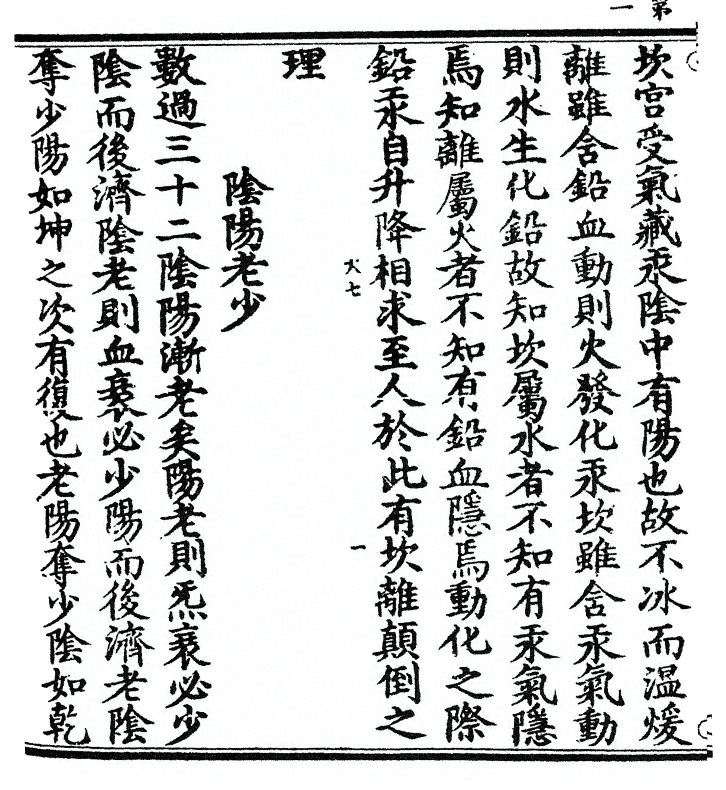 第一
坎宫受氣藏汞陰中有陽也故不冰而溫煖
離雖含鉛血動則火發化汞坎雖含汞氣動
則水生化鉛故知坎屬水者不知有汞氣隱
焉知離屬火者不知有鉛血隱焉動化之際
鉛汞自升降相求至人於此有坎離顛倒之
大七
一
理
陰陽老少
數過三十二陰陽漸老矣陽老則炁衰必少
陰而後濟陰老則血衰必少陽而後濟老陰
奪少陽如坤之次有復也老陽奪少陰如乾